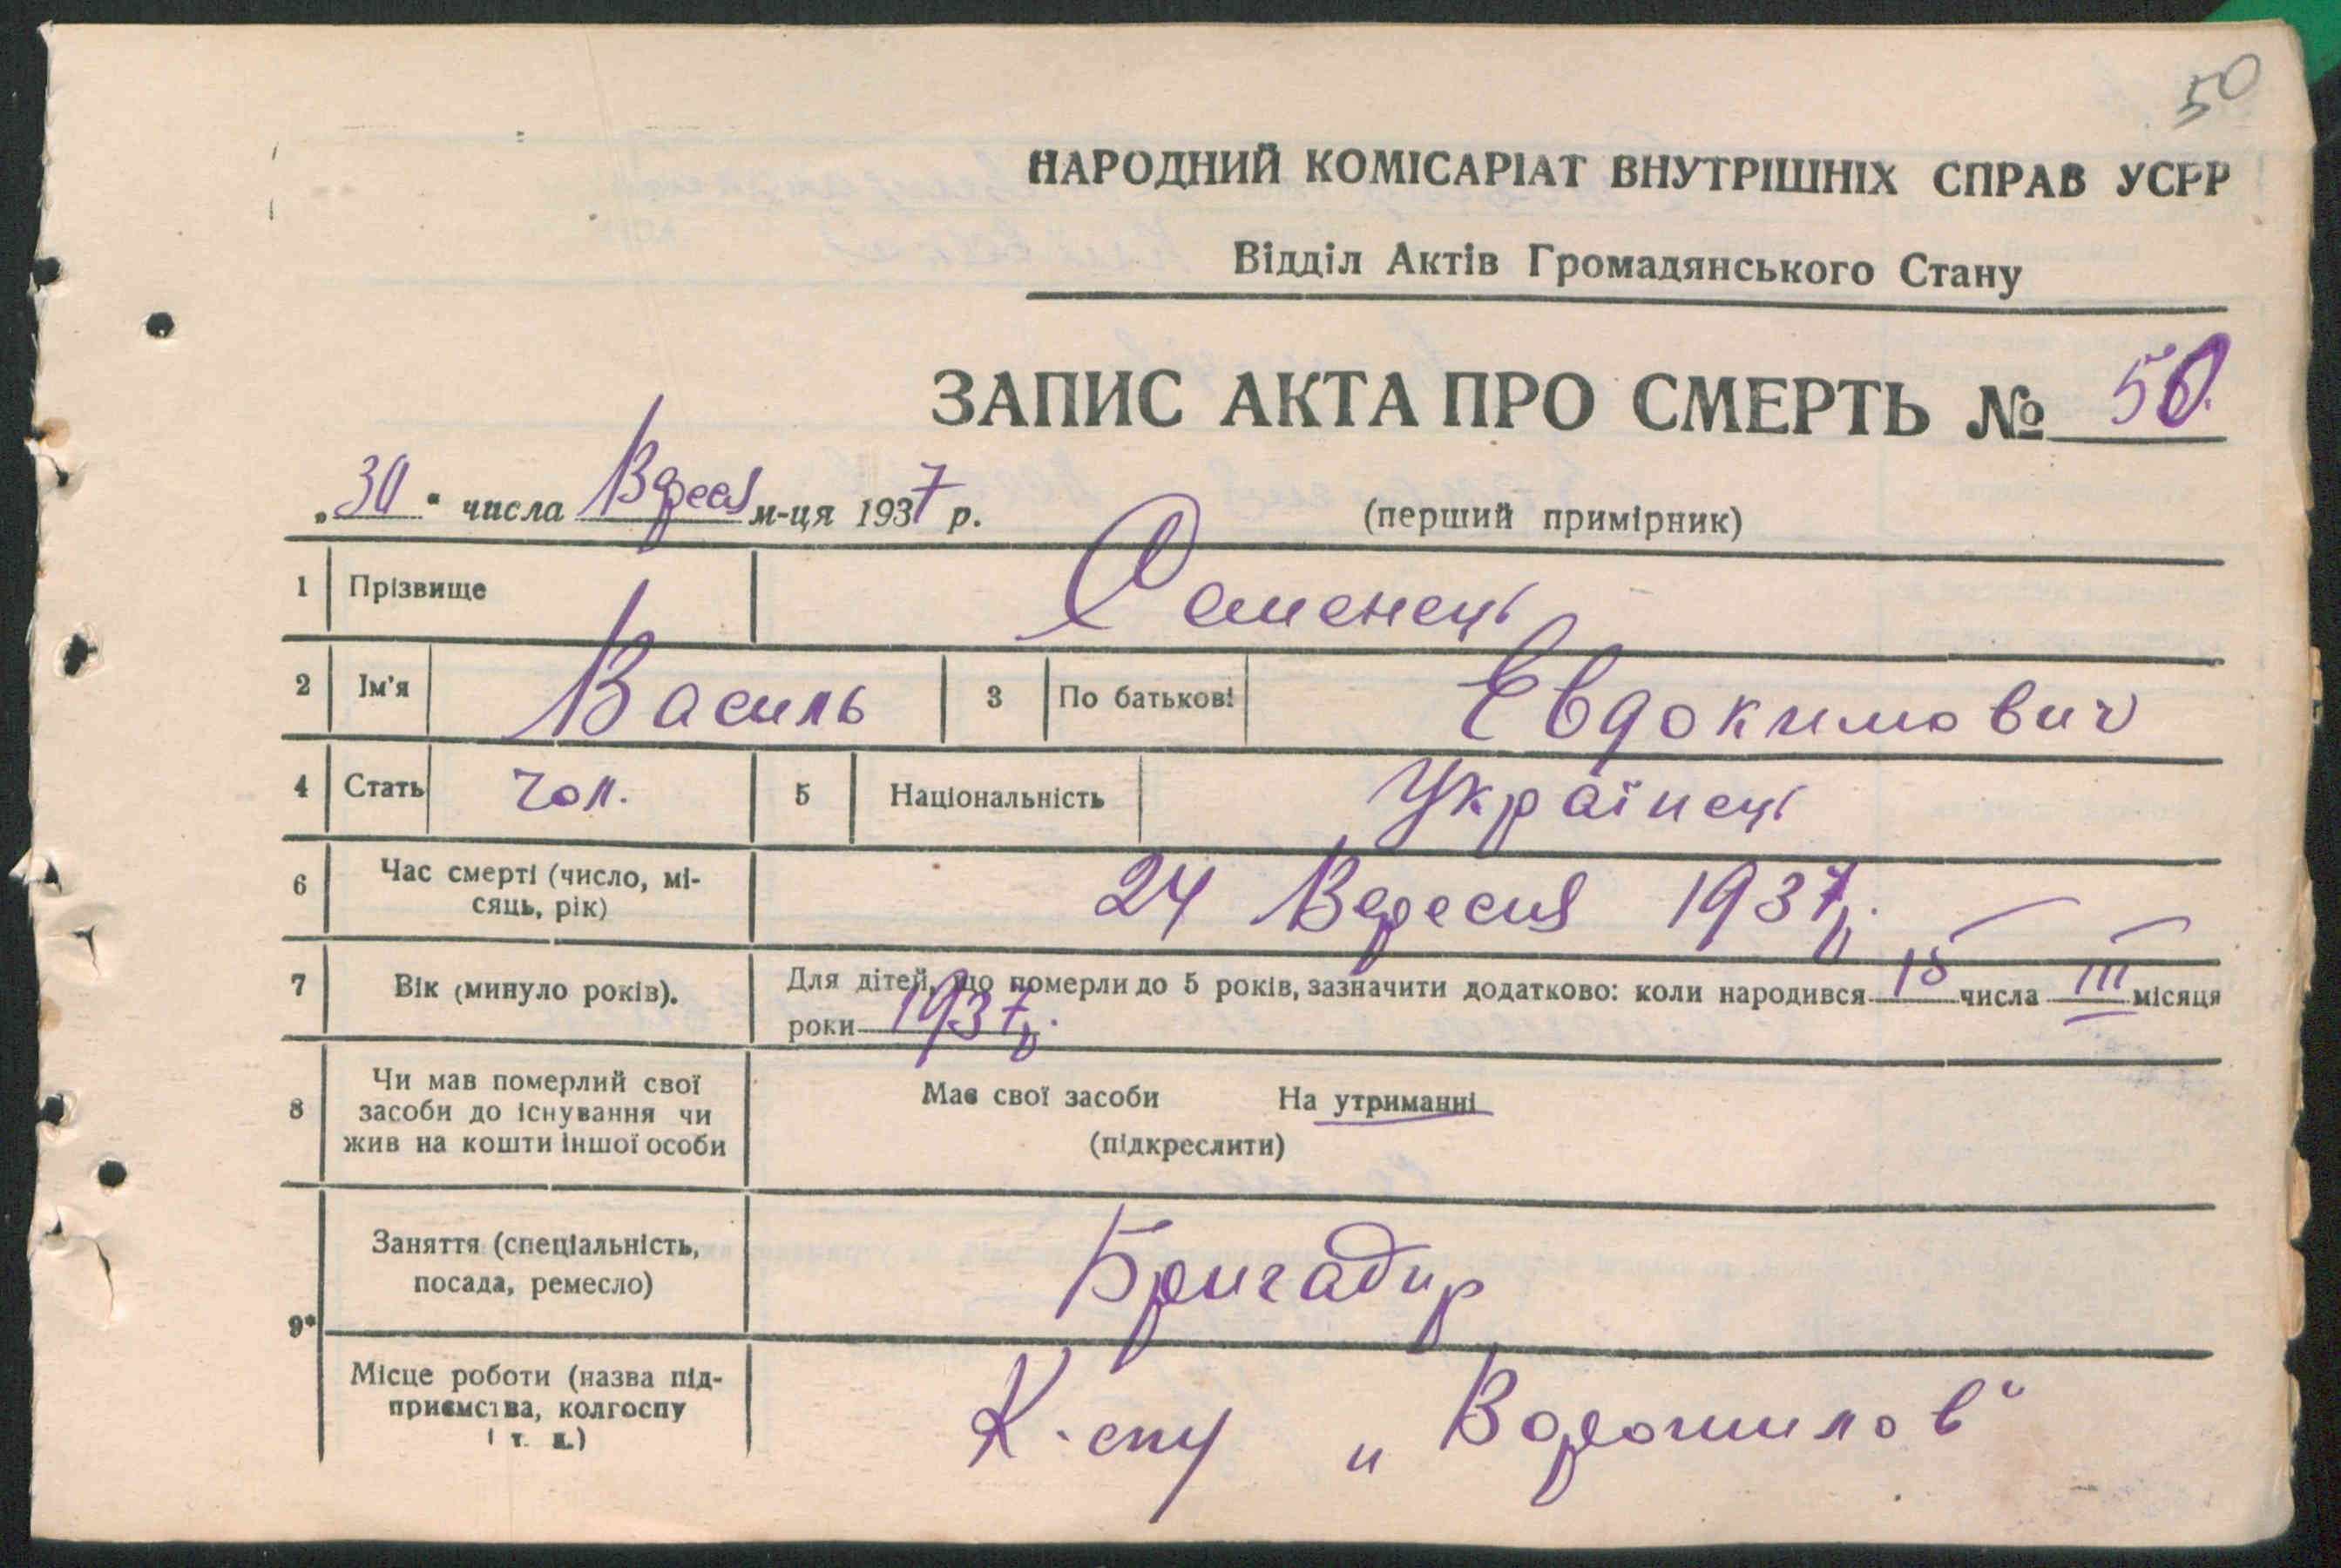 50
НАРОДНИЙ КОМІСАРІАТ ВНУТРІШНІХ СПРАВ УСРР
Відділ Актів Громадянського Стану
ЗАПИС АКТА ПРО СМЕРТЬ № 50.
„30" числа Вресня м-ця 1937 р. (перший примірник)
1 Прізвище Семенець
2 Ім'я Василь 3 По батькові Евдокимович
4 Стать чол. 5 Національність Українець
6 Час смерті (число, мі-
сяць, рік) 24 Вересня 1937р.
7 Вік (минуло років). Для дітей, що померли до 5 років, зазначити додатково: коли народився 15 числа III місяця
роки 1937р.
8 Чи мав померлий свої
засоби до існування чи
жив на кошти іншої особи
Має свої засоби На утриманні
(підкреслити)
9* Заняття (спеціальність,
посада, ремесло) Бригадир
Місце роботи (назва під-
приємства, колгоспу
і т. д.) К-спу „Ворошилов"